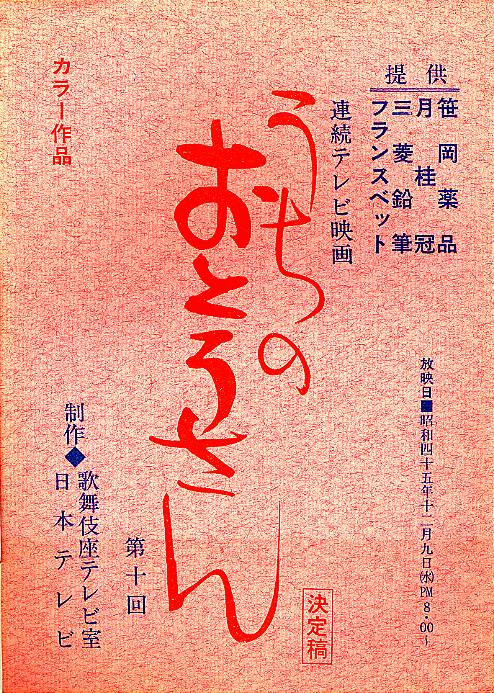 提供
笹岡薬品
月桂冠
三菱鉛筆
フランスベット
連続テレビ映画
うちの
おとうさん
カラー作品
放映日■昭和四十五年十二月九日㈬PM8・00〜
決定稿
第十回
制作◆歌舞伎座テレビ室
日本テレビ